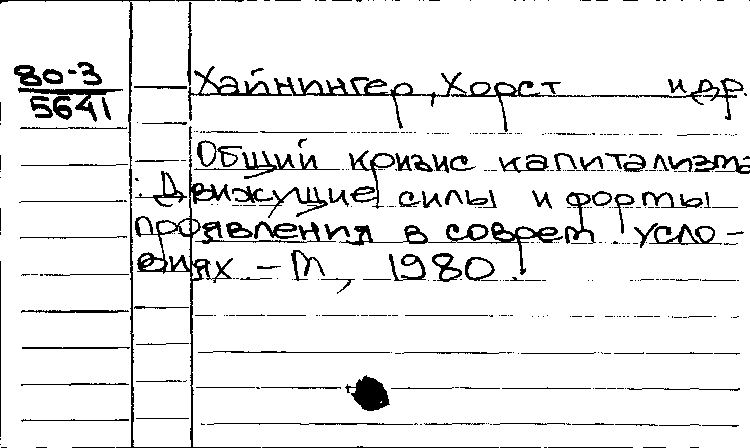 80-3
5641
Хайнингер, Хорст и др.
Общий кризис капитализма
: Движущие силы и формы
проявления в соврем. усло-
виях. - М, 1980.